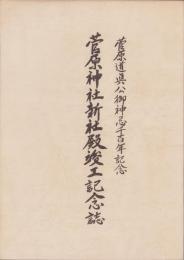 菅原道真公御神忌千百年記念
菅原神社新社殿竣工記念誌